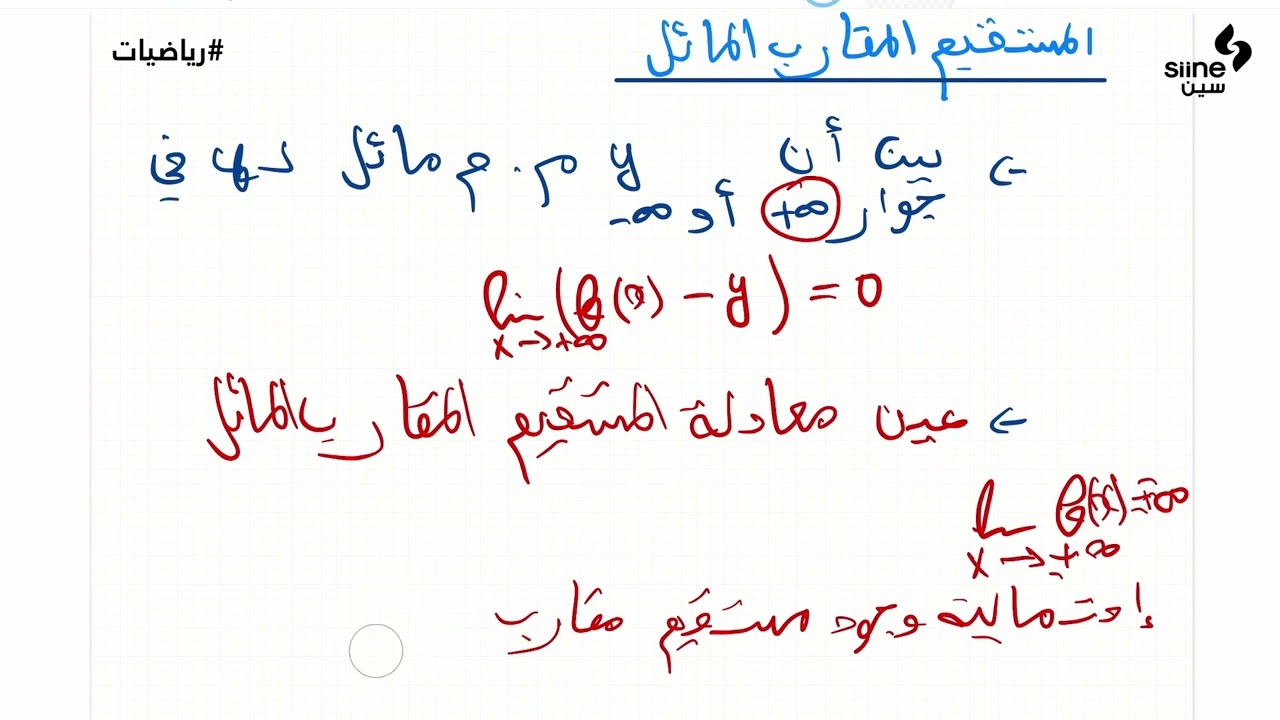 #رياضيات
siine
سين
المستقيم المقارب المائل
← بين أن y م.م مائل لها في
جوار +∞ أو -∞
lim (f(x) - y) = 0
x → +∞
← عين معادلة المستقيم المقارب المائل
lim f(x) = ±∞
x → +∞
إحتمالية وجود مستقيم مقارب